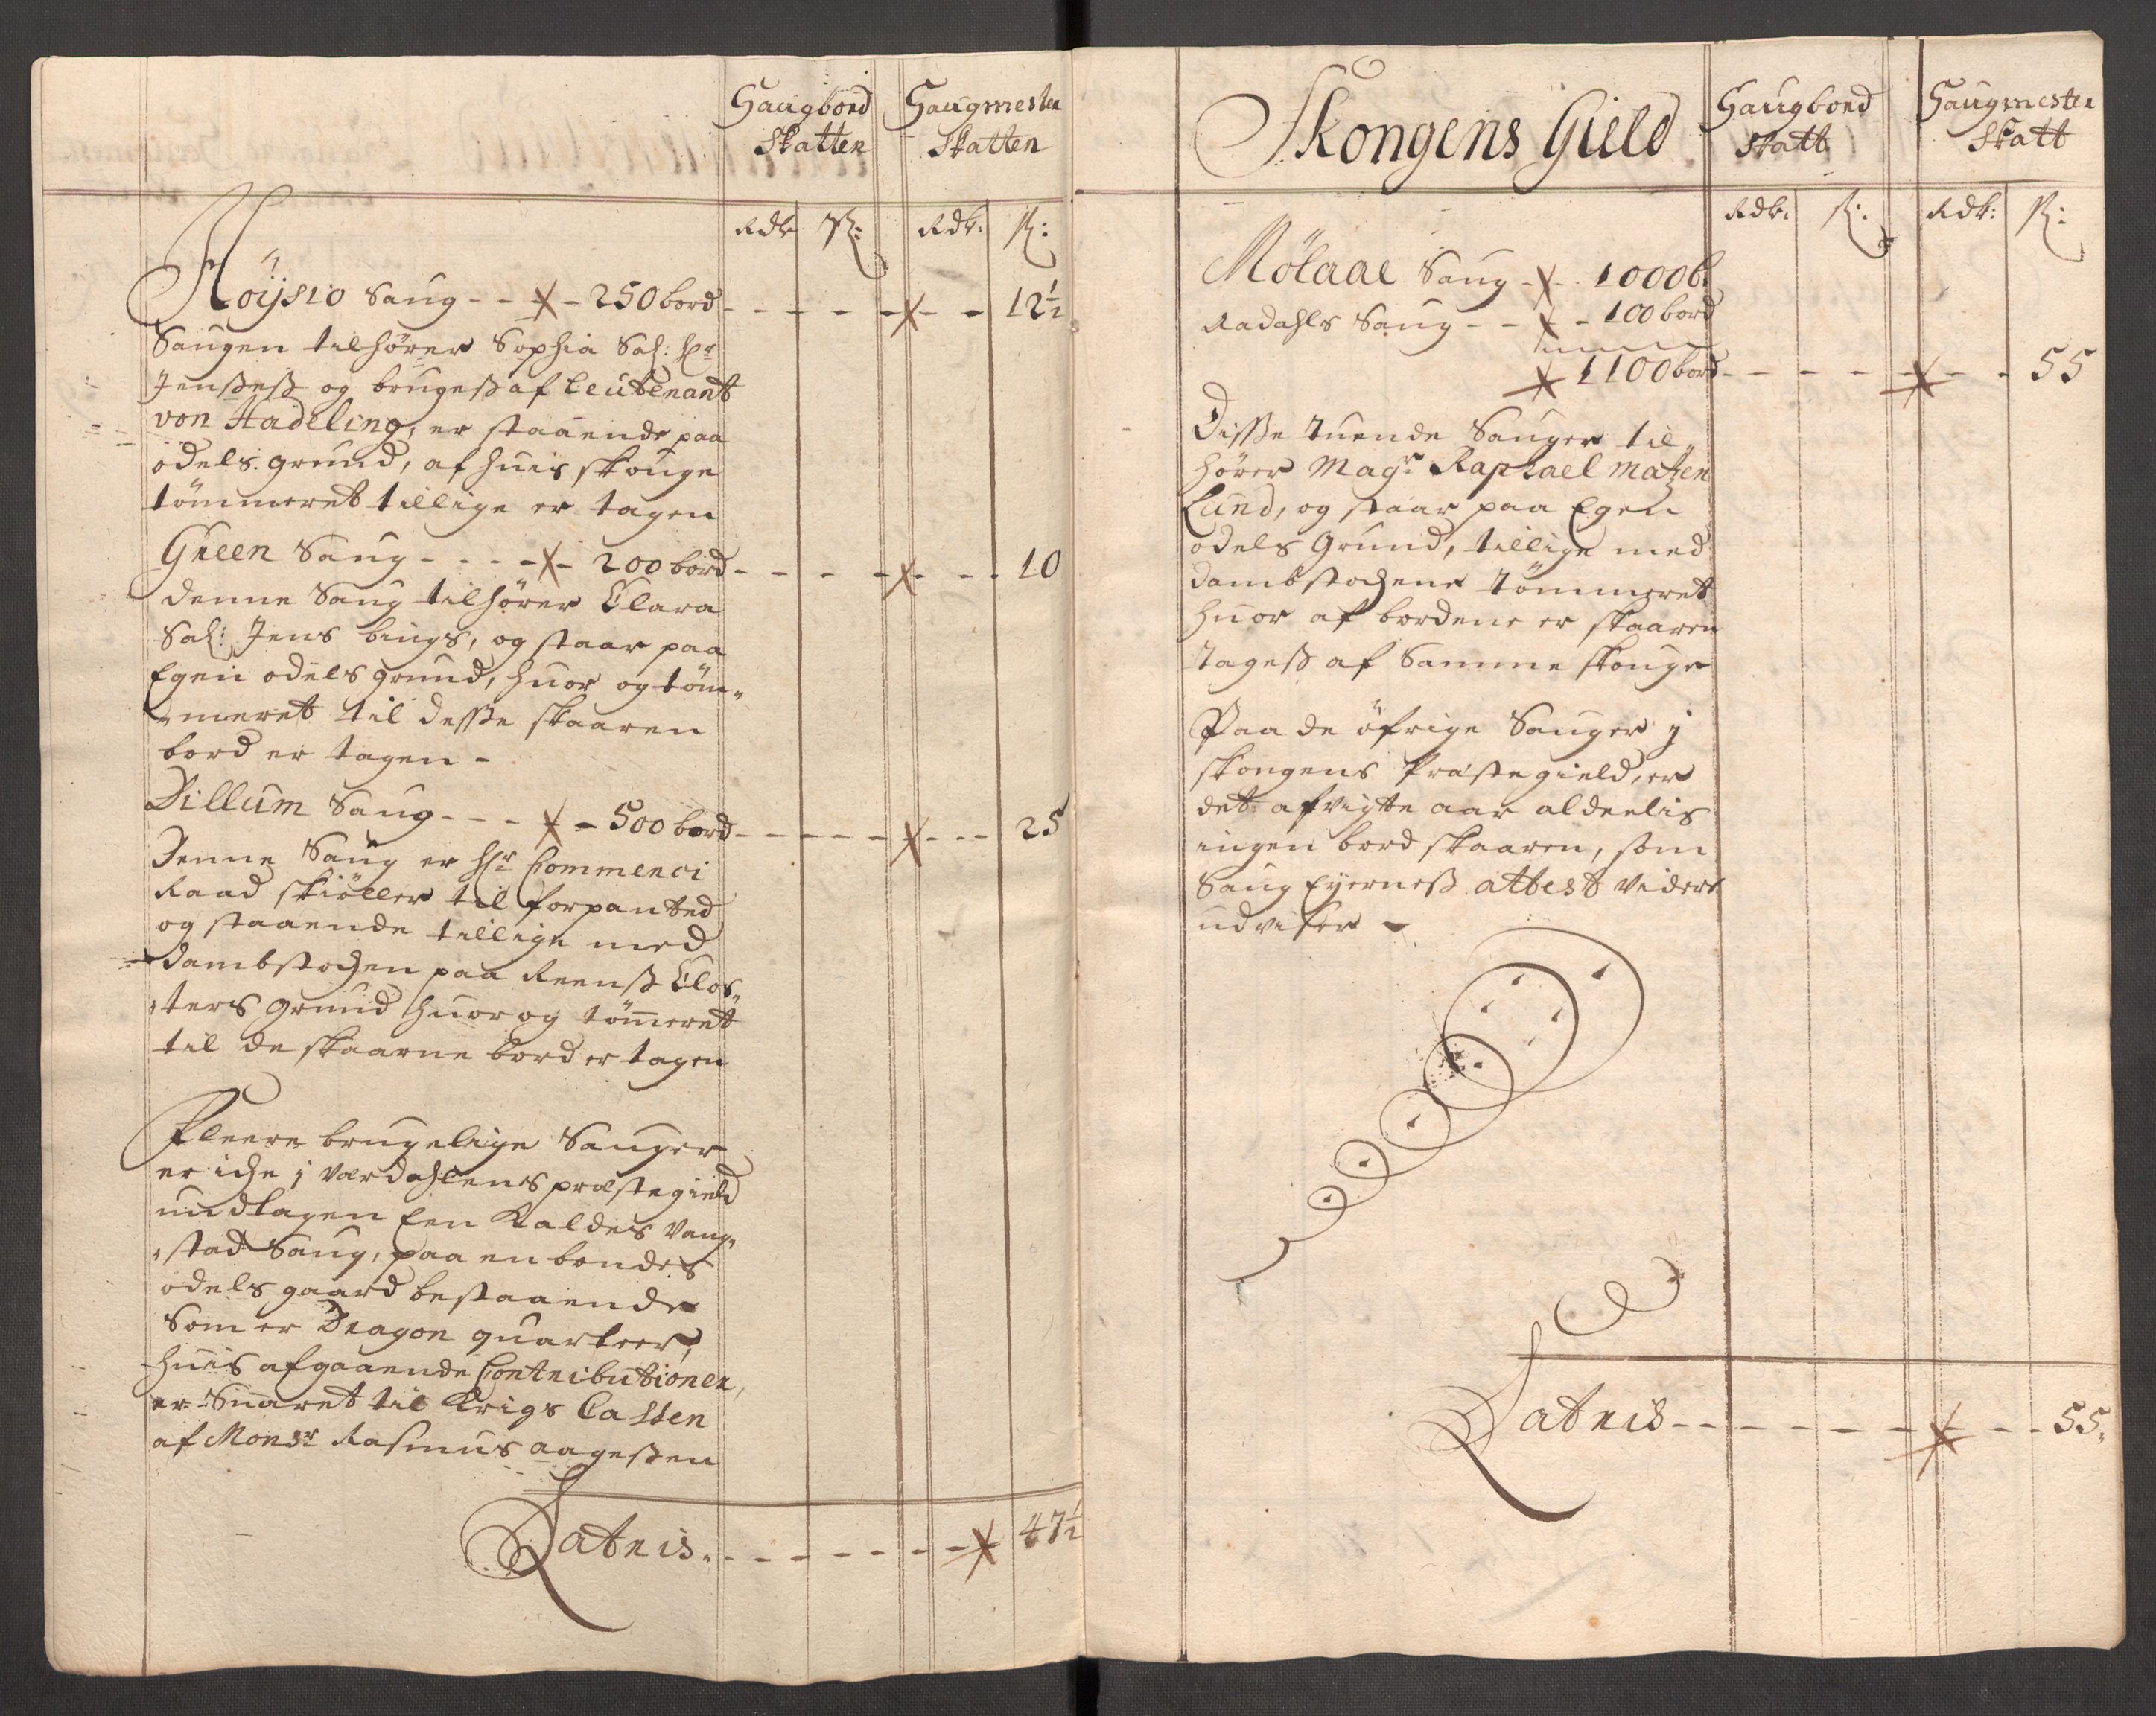 Saugbord Skatten
Saugmester Skatten
Rdlr ß: Rdlr: ß:
Höysiö Saug - - - 250 bord - - - - - - - 12½
Saugen tilhører Sophia Sal: Hr
Jenßeß og brugeß af Leutenant
von Hadeling, er staaende paa
odels grund, af huis skouge
tömmeret tillige er tagen
Green Saug - - - - 200 bord - - - - - - - 10
denne Saug tilhører Clara
Sal: Jens bings, og staar paa
Egen odels grund, huor og töm„
„meret til desse skaaren
bord er tagen -
Dillum Saug - - - - 500 bord - - - - - - - 25
Denne Saug er Hr Commerci
Raad skiöller til forpanted
og staaende tillige med
dambstochen paa Reenß Clos„
„ters grund huor og tömeret
til de skaarne bord er tagen
Fleere brugelige Sauger
er iche j Værdahlens præstegield
undtagen Een Kaldes Vang„
„stad Saug, paa en bondes
odels gaard bestaaende
Som er Dragon quarteer,
huis afgaaende Contributioner,
er Suaret til Krigs Cassen
af Monsr Rasmus aageßen
Lateris - - - - - - - - 47½
Skongens Gield
Saugbord skatt
Saugmester Skatt
Rdlr: ß: Rdlr: ß:
Mölaae Saug - - 1000 b:
Radahls Saug - - - 100 bord
1100 bord - - - - - - - 55
Disse tuende Sauger til„
hører Magr: Raphael Matzen
Lund, og staar paa Egen
odels Grund, tillige med
dambstochene tömmeret
huor af bordene er skaaren
tageß af Samme skouge
Paa de öfrige Sauger j
skongens Præstegield, er
det afvigte aar aldeelis
ingen bord skaaren, som
Saug Eyerneß attest videre
udviser -
Lateris - - - - - - - - 55„